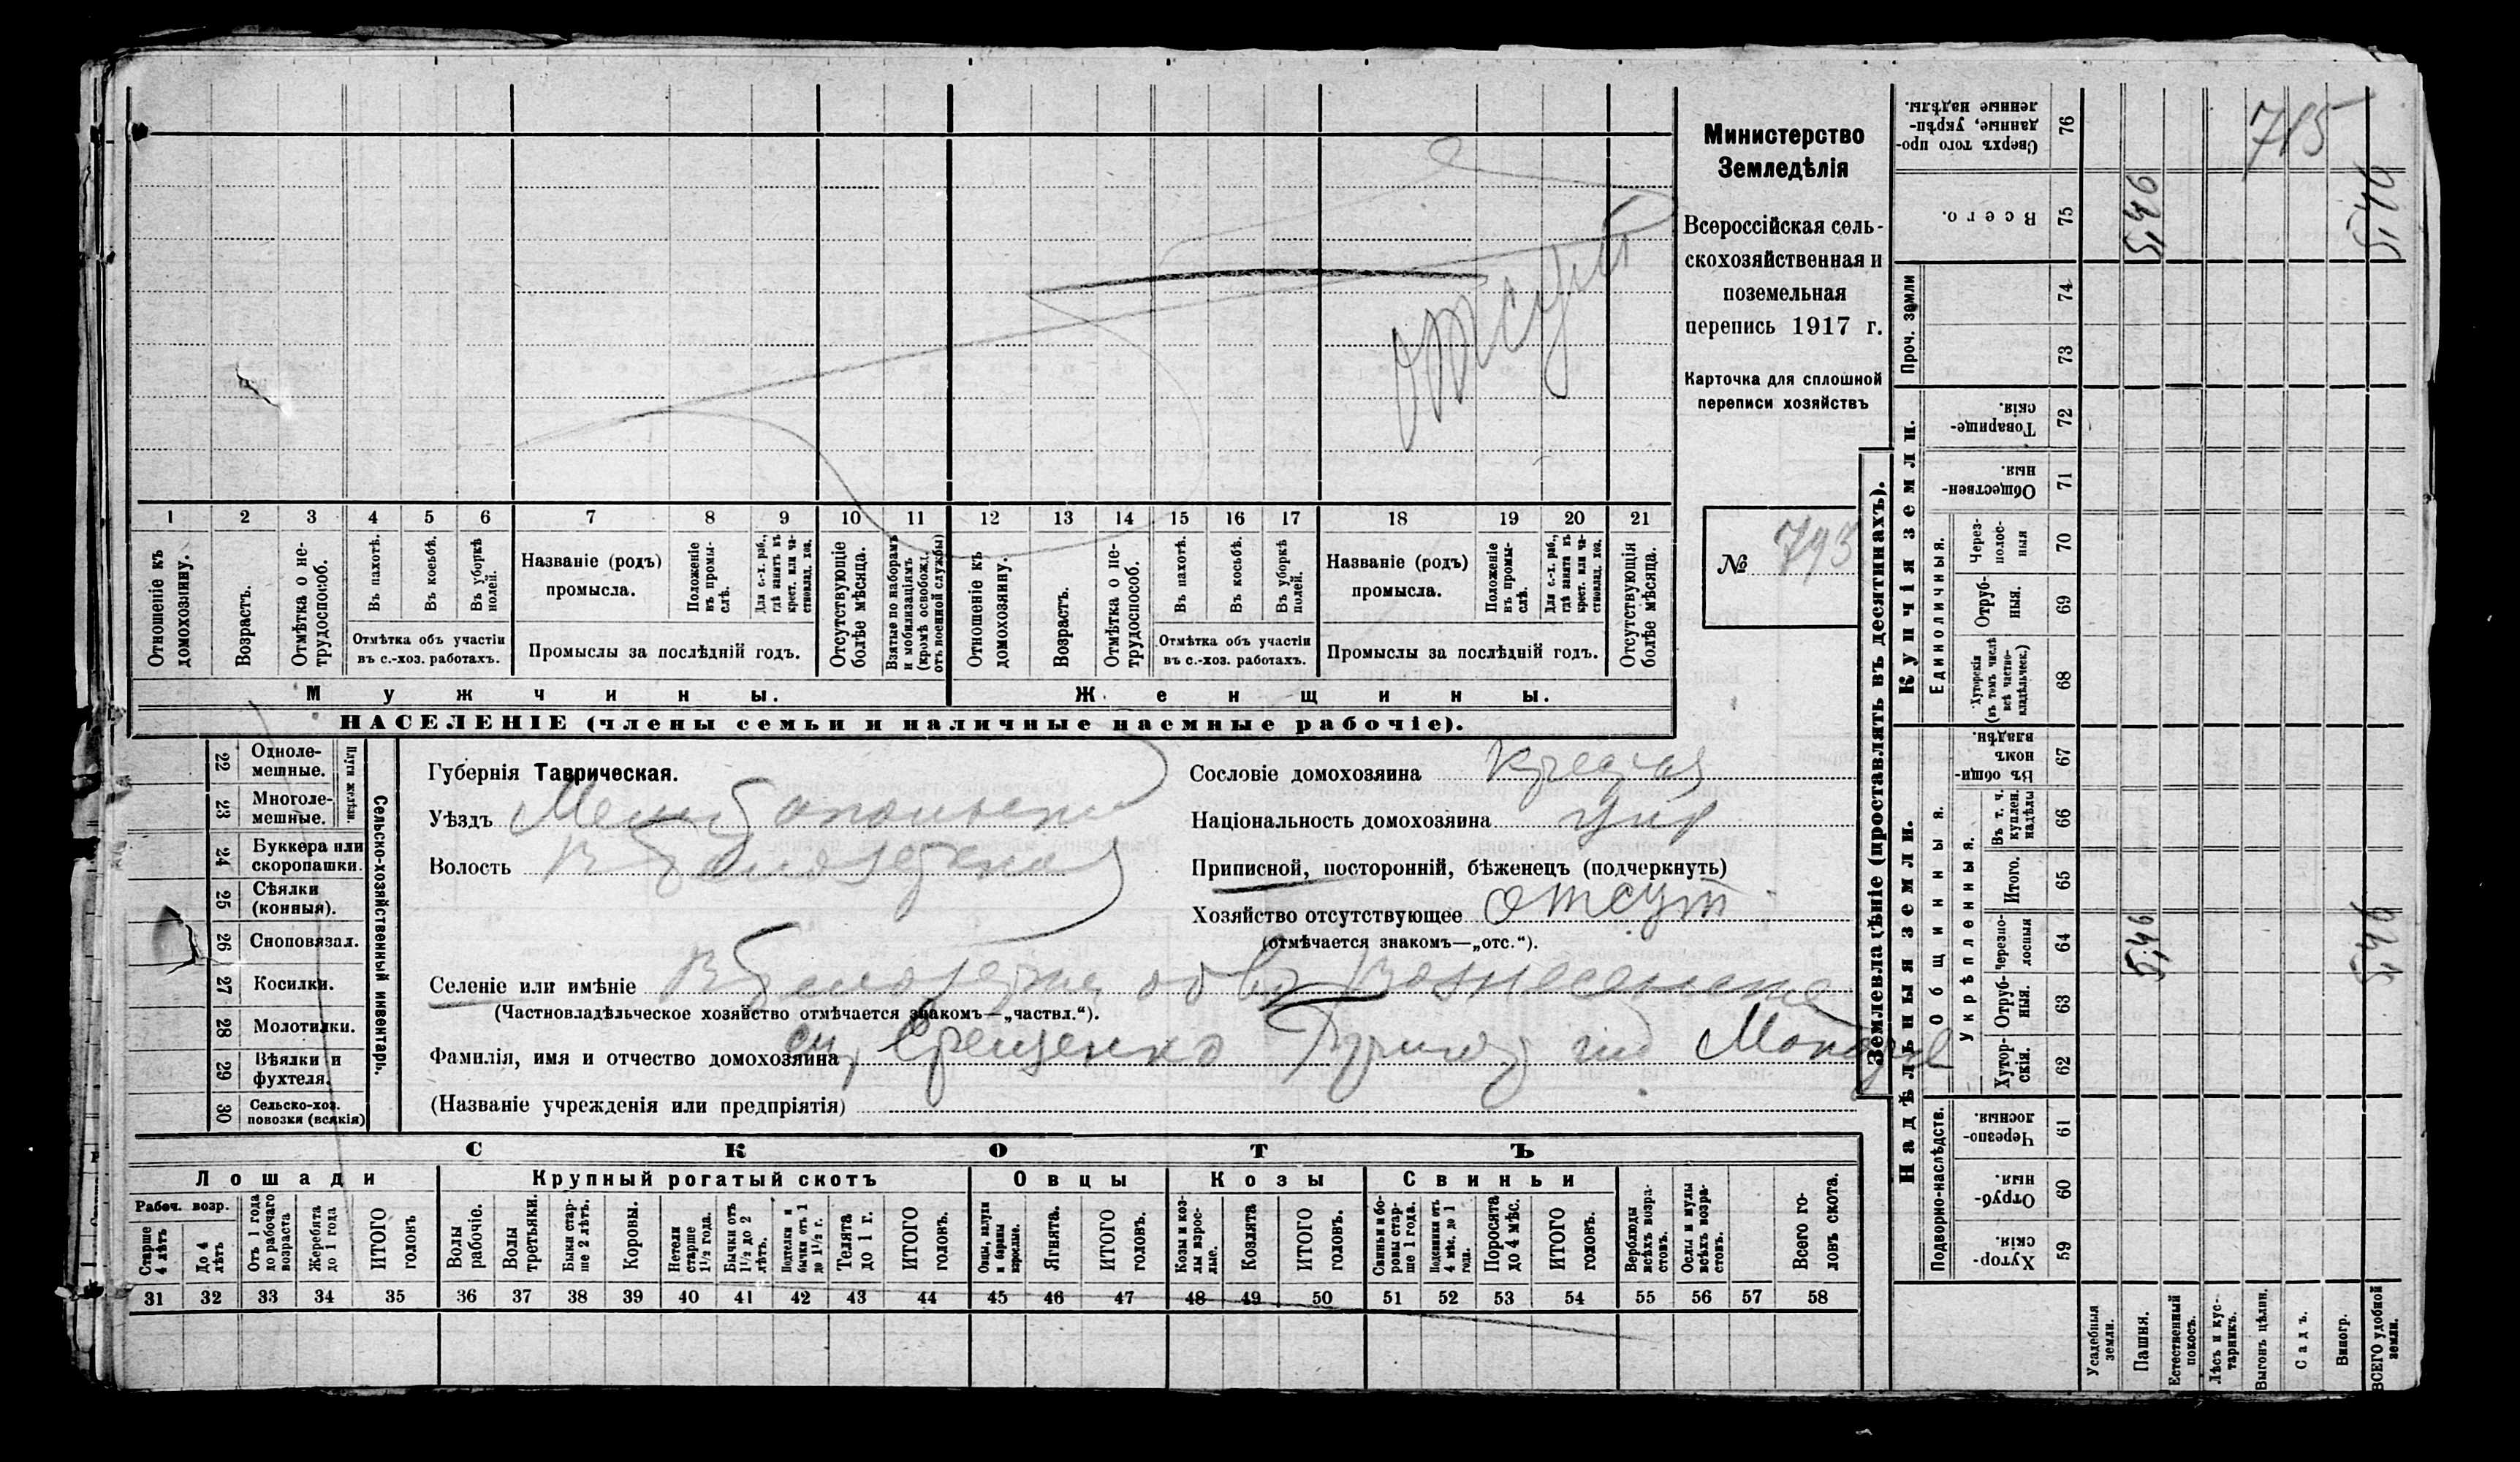 отсут
1 2 3 4 5 6 7 8 9 10 11 12 13 14 15 16 17 18 19 20 21
Отношеніе къ домохозяину.
Возрастъ.
Отмѣтка о не-трудоспособ.
Въ пахотѣ.
Въ косьбѣ.
Въ уборкѣ полей.
Отмѣтка объ участіи
въ с.-хоз. работахъ.
Названіе (родъ)
промысла.
Положеніе въ промы-слѣ.
Для с.-х. раб., гдѣ занятъ въ крест. или ча-стновлад. хоз.
Промыслы за послѣдній годъ.
Отсутствующіе болѣе мѣсяца.
Взятые по наборамъ и мобилизаціямъ (кромѣ освобожд. отъ военной службы)
Отношеніе къ домохозяину.
Возрастъ.
Отмѣтка о не-трудоспособ.
Въ пахотѣ.
Въ косьбѣ.
Въ уборкѣ полей.
Отмѣтка объ участіи
въ с.-хоз. работахъ.
Названіе (родъ)
промысла.
Положеніе въ промы-слѣ.
Для с.-х. раб., гдѣ занята въ крест. или ча-стновлад. хоз.
Промыслы за послѣдній годъ.
Отсутствующія болѣе мѣсяца.
Мужчины.
Женщины.
НАСЕЛЕНІЕ (члены семьи и наличные наемные рабочіе).
Министерство
Земледѣлія
Всероссійская сель-
скохозяйственная и
поземельная
перепись 1917 г.
Карточка для сплошной
переписи хозяйствъ
№ 793
22 Одноле-мешные.
23 Многоле-мешные.
Плуги желѣзн.
24 Буккера или скоропашки.
25 Сѣялки (конныя).
26 Сноповязал.
27 Косилки.
28 Молотилки.
29 Вѣялки и фухтеля.
30 Сельско-хоз. повозки (всякія)
Сельско-хозяйственный инвентарь.
Губернія Таврическая.
Уѣздъ Мелитопольскій
Волость В Бѣлозерская
Селеніе или имѣніе В Бѣлозерка об во Вознесенское
(Частновладѣльческое хозяйство отмѣчается знакомъ—„частвл.“).
Фамилія, имя и отчество домохозяина Ерещенко
(Названіе учрежденія или предпріятія)
Сословіе домохозяина
Національность домохозяина укр
Приписной, посторонній, бѣженецъ (подчеркнуть)
Хозяйство отсутствующее отсут
(отмѣчается знакомъ—„отс.“).
СКОТЪ
Лошади
Крупный рогатый скотъ
Овцы
Козы
Свиньи
Рабоч. возр.
Старше 4 лѣтъ
До 4 лѣтъ
Отъ 1 года до рабочаго возраста
Жеребята до 1 года
ИТОГО головъ
Волы рабочіе.
Волы третьяки.
Быки стар-ше 2 лѣтъ.
Коровы.
Нетели старше 1½ года.
Бычки отъ 1½ до 2 лѣтъ.
Подтелки и бычки отъ 1 до 1½ г.
Телята до 1 г.
ИТОГО головъ.
Овцы, валухи и бараны взрослые.
Ягнята.
ИТОГО головъ.
Козы и коз-лы взрос-лые.
Козлята
ИТОГО головъ.
Свиньи и бо-ровы стар-ше 1 года.
Подсвинки отъ 4 мѣс. до 1 года.
Поросята до 4 мѣс.
ИТОГО головъ.
Верблюды всѣхъ возра-стовъ.
Ослы и мулы всѣхъ возра-стовъ.
Всего го-ловъ скота.
31 32 33 34 35 36 37 38 39 40 41 42 43 44 45 46 47 48 49 50 51 52 53 54 55 56 57 58
Землевладѣніе (проставлять въ десятинахъ).
Надѣльныя земли.
Купчія земли.
Проч. земли
Подворно-наслѣдств.
Общинныя.
Укрѣпленныя.
Единоличныя.
Сверхъ того про-данные, укрѣп-ленные надѣлы. 76
Всего. 75
74
73
Товарище-скія. 72
Обществен-ныя. 71
Через-полос-ныя 70
Отруб-ныя. 69
Хуторскія (въ томъ числѣ всѣ частно-владѣльческ.) 68
Въ общи-номъ владѣн. 67
Въ т. ч. куплен. надѣлы 66
Итого. 65
Черезпо-лосныя 64
Отруб-ныя. 63
Хутор-скія. 62
Черезпо-лосныя. 61
Отруб-ныя. 60
Хутор-скія. 59
715
5,46
5,46
5,46
5,46
Усадебныя земли.
Пашня.
Естественный покосъ.
Лѣсъ и кус-тарникъ.
Выгонъ цѣлин.
Садъ.
Виногр.
ВСЕГО удобной земли.